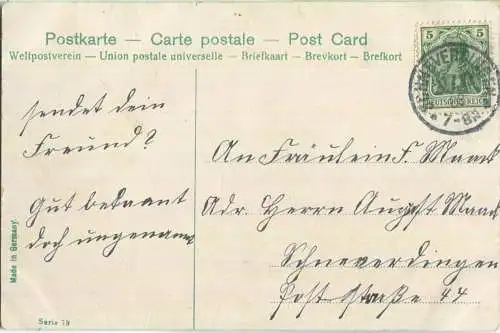 Postkarte — Carte postale — Post Card
Weltpostverein — Union postale universelle — Briefkaart — Brevkort — Brefkort
5 5
DEUTSCHES REICH
7-8
sendet dein
Freund?
Gut bekannt
doch ungenannt
An Fräulein F. Maack
Adr. Herrn August Maack
Schneverdingen
Post straße 44
Made in Germany.
Serie 79